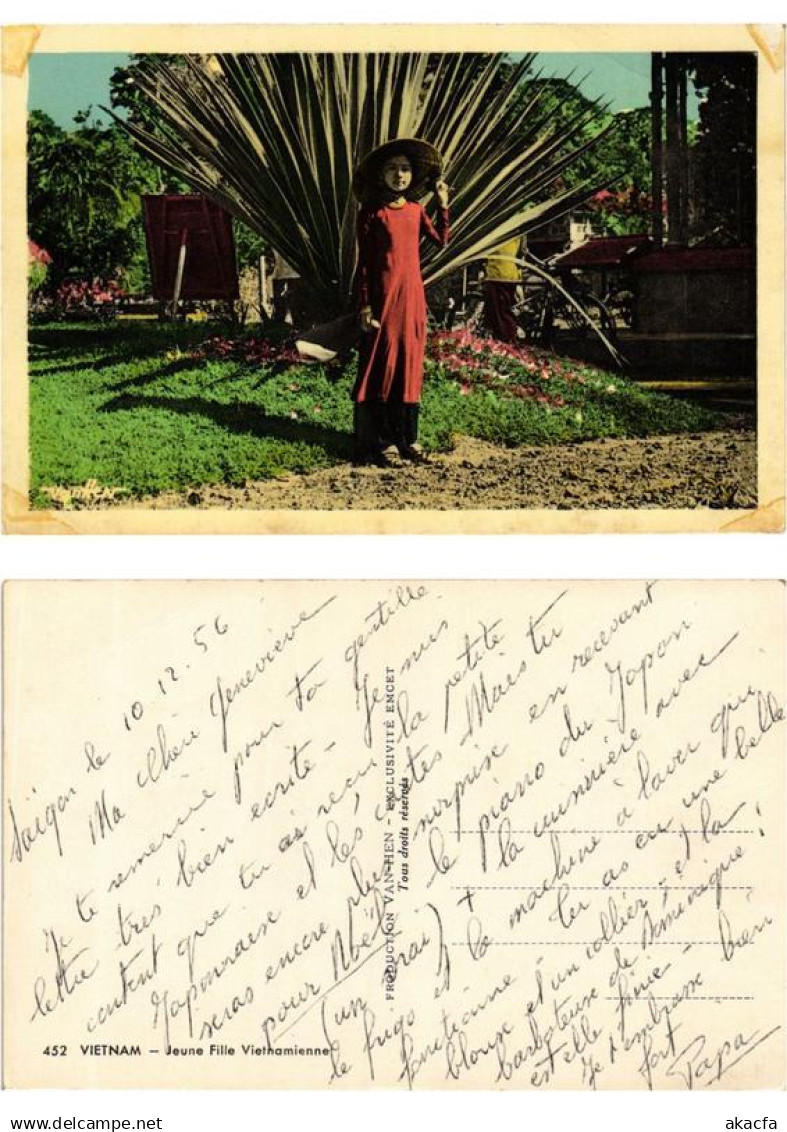 Van-Hen
Saïgon le 10.12.56
Ma chère Geneviève
Je te remercie pour ta gentille
lettre très bien écrite - Je suis
content que tu as reçu la petite
Japonaise et les cartes Mais tu
seras encore plus surprise en recevant
pour Noël le piano du Japon
(un vrai) + la cuisinière avec
le frigo et la machine à laver qui
fonctionne - tu as eu une belle
blouse et un collier, et la
barboteuse de Dominique
est elle finie - !
Je t'embrasse bien
fort
Papa
PRODUCTION VAN-HEN - EXCLUSIVITÉ EMCET
Tous droits réservés
452 VIETNAM — Jeune Fille Vietnamienne
www.delcampe.net
akacfa